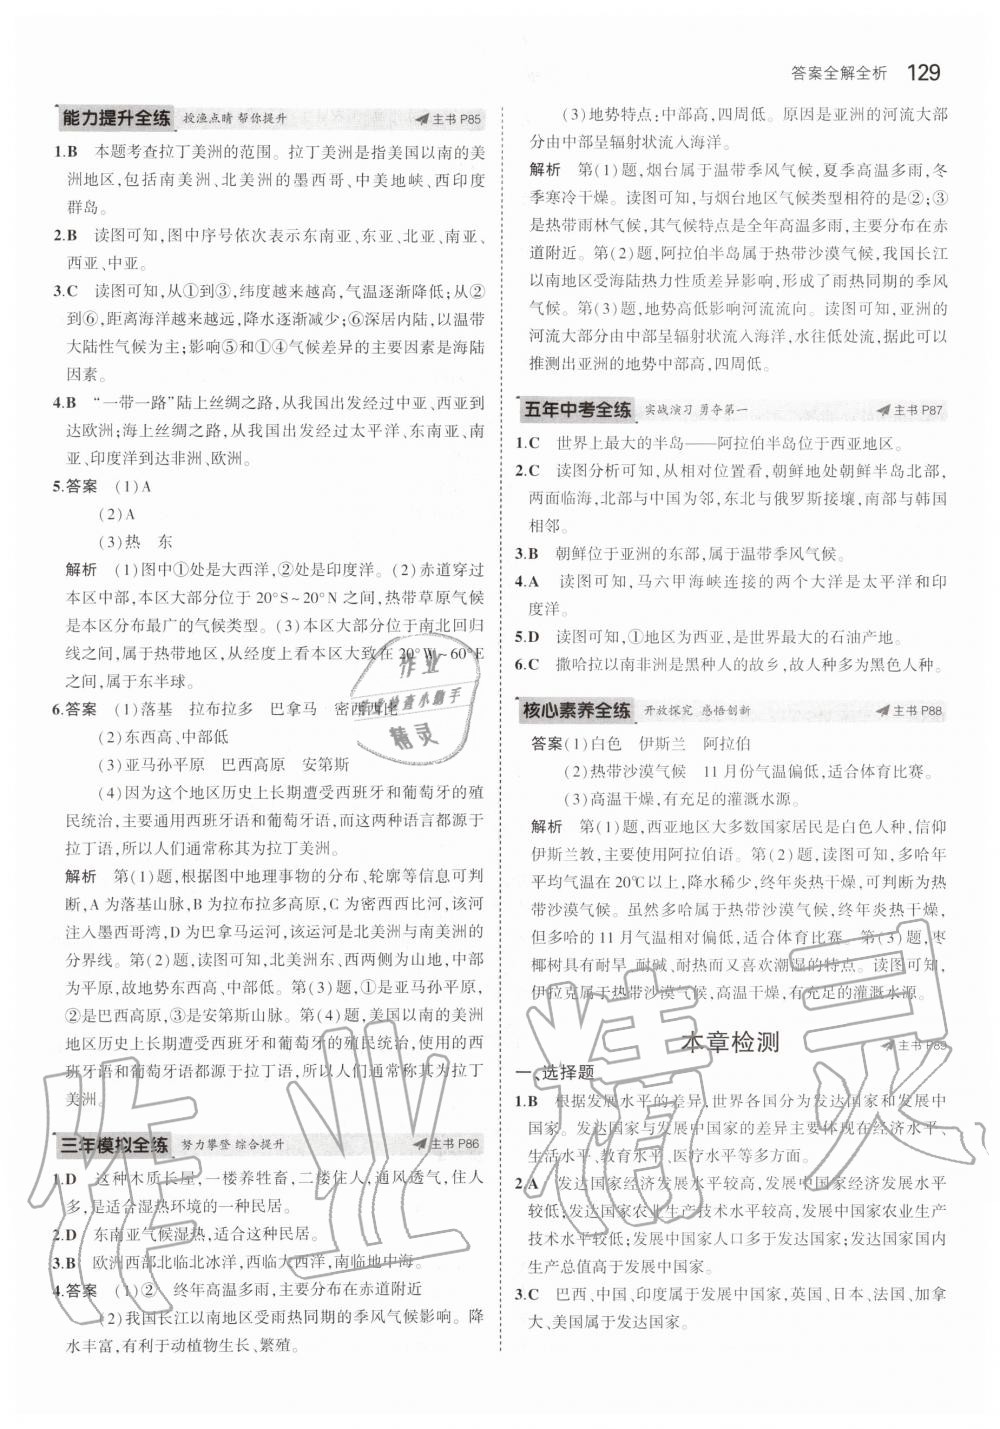 答案全解全析 129
能力提升全练 授渔点睛 帮你提升 主书 P85
1.B 本题考查拉丁美洲的范围。拉丁美洲是指美国以南的美
洲地区,包括南美洲、北美洲的墨西哥、中美地峡、西印度
群岛。
2.B 读图可知,图中序号依次表示东南亚、东亚、北亚、南亚、
西亚、中亚。
3.C 读图可知,从①到③,纬度越来越高,气温逐渐降低;从②
到⑥,距离海洋越来越远,降水逐渐减少;⑥深居内陆,以温带
大陆性气候为主;影响⑤和①④气候差异的主要因素是海陆
因素。
4.B “一带一路”陆上丝绸之路,从我国出发经过中亚、西亚到
达欧洲;海上丝绸之路,从我国出发经过太平洋、东南亚、南
亚、印度洋到达非洲、欧洲。
5.答案 (1)A
(2)A
(3)热 东
解析 (1)图中①处是大西洋,②处是印度洋。(2)赤道穿过
本区中部,本区大部分位于20°S~20°N之间,热带草原气候
是本区分布最广的气候类型。(3)本区大部分位于南北回归
线之间,属于热带地区,从经度上看本区大致在20°W~60°E
之间,属于东半球。
6.答案 (1)落基 拉布拉多 巴拿马 密西西比
(2)东西高、中部低
(3)亚马孙平原 巴西高原 安第斯
(4)因为这个地区历史上长期遭受西班牙和葡萄牙的殖
民统治,主要通用西班牙语和葡萄牙语,而这两种语言都源于
拉丁语,所以人们通常称其为拉丁美洲。
解析 第(1)题,根据图中地理事物的分布、轮廓等信息可判
断,A为落基山脉,B为拉布拉多高原,C为密西西比河,该河
注入墨西哥湾,D为巴拿马运河,该运河是北美洲与南美洲的
分界线。第(2)题,读图可知,北美洲东、西两侧为山地,中部
为平原,故地势东西高、中部低。第(3)题,①是亚马孙平原,
②是巴西高原,③是安第斯山脉。第(4)题,美国以南的美洲
地区历史上长期遭受西班牙和葡萄牙的殖民统治,使用的西
班牙语和葡萄牙语都源于拉丁语,所以人们通常称其为拉丁
美洲。
三年模拟全练 努力攀登 综合提升 主书 P86
1.D 这种木质长屋,一楼养牲畜,二楼住人,通风透气,住人
多,是适合湿热环境的一种民居。
2.D 东南亚气候湿热,适合这种民居。
3.B 欧洲西部北临北冰洋,西临大西洋,南临地中海。
4.答案 (1)② 终年高温多雨,主要分布在赤道附近
(2)我国长江以南地区受雨热同期的季风气候影响。降
水丰富,有利于动植物生长、繁殖。
(3)地势特点:中部高,四周低。原因是亚洲的河流大部
分由中部呈辐射状流入海洋。
解析 第(1)题,烟台属于温带季风气候,夏季高温多雨,冬
季寒冷干燥。读图可知,与烟台地区气候类型相符的是②;③
是热带雨林气候,其气候特点是全年高温多雨,主要分布在赤
道附近。第(2)题,阿拉伯半岛属于热带沙漠气候,我国长江
以南地区受海陆热力性质差异影响,形成了雨热同期的季风
气候。第(3)题,地势高低影响河流流向。读图可知,亚洲的
河流大部分由中部呈辐射状流入海洋,水往低处流,据此可以
推测出亚洲的地势中部高,四周低。
五年中考全练 实战演习 勇夺第一 主书 P87
1.C 世界上最大的半岛——阿拉伯半岛位于西亚地区。
2.C 读图分析可知,从相对位置看,朝鲜地处朝鲜半岛北部,
两面临海,北部与中国为邻,东北与俄罗斯接壤,南部与韩国
相邻。
3.B 朝鲜位于亚洲的东部,属于温带季风气候。
4.A 读图可知,马六甲海峡连接的两个大洋是太平洋和印
度洋。
5.D 读图可知,①地区为西亚,是世界最大的石油产地。
6.C 撒哈拉以南非洲是黑种人的故乡,故人种多为黑色人种。
核心素养全练 开放探究 感悟创新 主书 P88
答案(1)白色 伊斯兰 阿拉伯
(2)热带沙漠气候 11月份气温偏低,适合体育比赛。
(3)高温干燥,有充足的灌溉水源。
解析 第(1)题,西亚地区大多数国家居民是白色人种,信仰
伊斯兰教,主要使用阿拉伯语。第(2)题,读图可知,多哈年
平均气温在20℃以上,降水稀少,终年炎热干燥,可判断为热
带沙漠气候。虽然多哈属于热带沙漠气候,终年炎热干燥,
但多哈的11月气温相对偏低,适合体育比赛。第(3)题,枣
椰树具有耐旱、耐碱、耐热而又喜欢潮湿的特点。读图可知,
伊拉克属于热带沙漠气候,高温干燥,有充足的灌溉水源。
本章检测 主书 P89
一、选择题
1.B 根据发展水平的差异,世界各国分为发达国家和发展中
国家。发达国家与发展中国家的差异主要体现在经济水平、
生活水平、教育水平、医疗水平等多方面。
2.A 发达国家经济发展水平较高,发展中国家经济发展水平
较低;发达国家农业生产技术水平较高,发展中国家农业生产
技术水平较低;发展中国家人口多于发达国家;发达国家国内
生产总值高于发展中国家。
3.C 巴西、中国、印度属于发展中国家,英国、日本、法国、加拿
大、美国属于发达国家。
作业
作业检查小助手
精灵
作业精灵